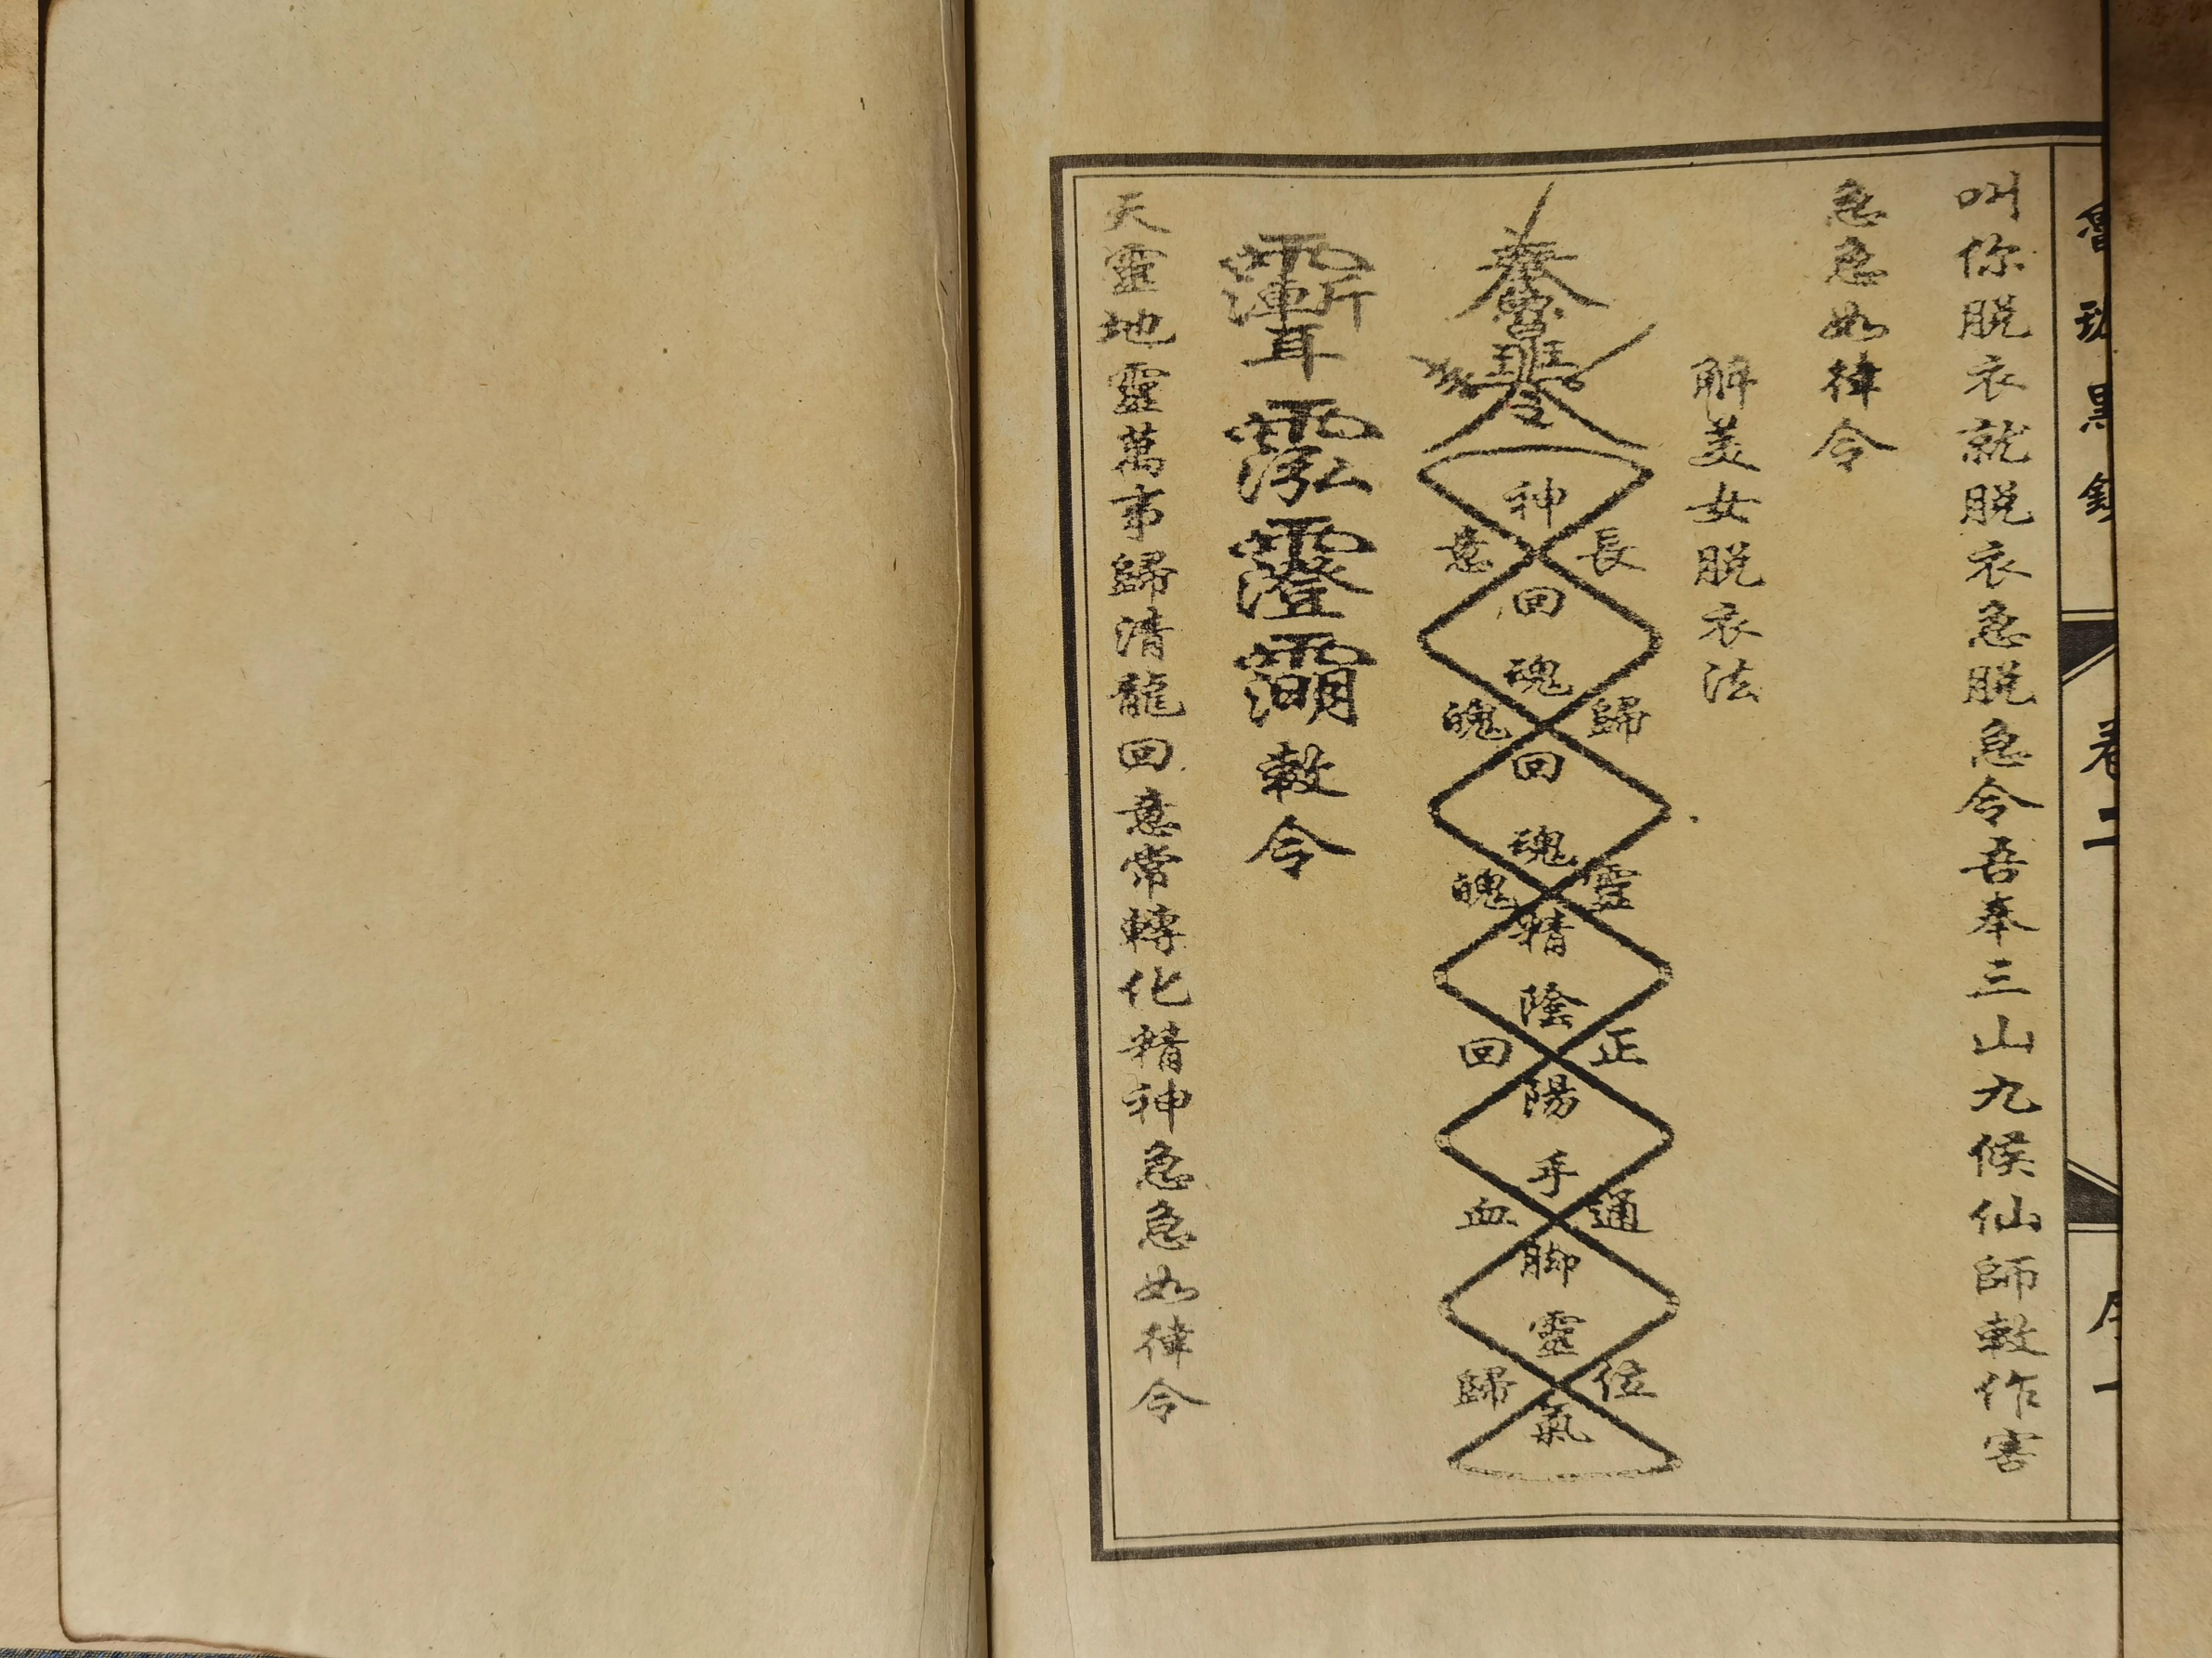 卷二
叫你脱衣就脱衣急脱急令吾奉三山九候仙師敕作害
急急如律令
解美女脱衣法
魯班令
神
長
意
回
魂
歸
魄
回
魂
靈
魄
精
陰
正
回
陽
手
通
血
脚
靈
位
歸
氣
敕令
天靈地靈萬事歸清龍回意常轉化精神急急如律令